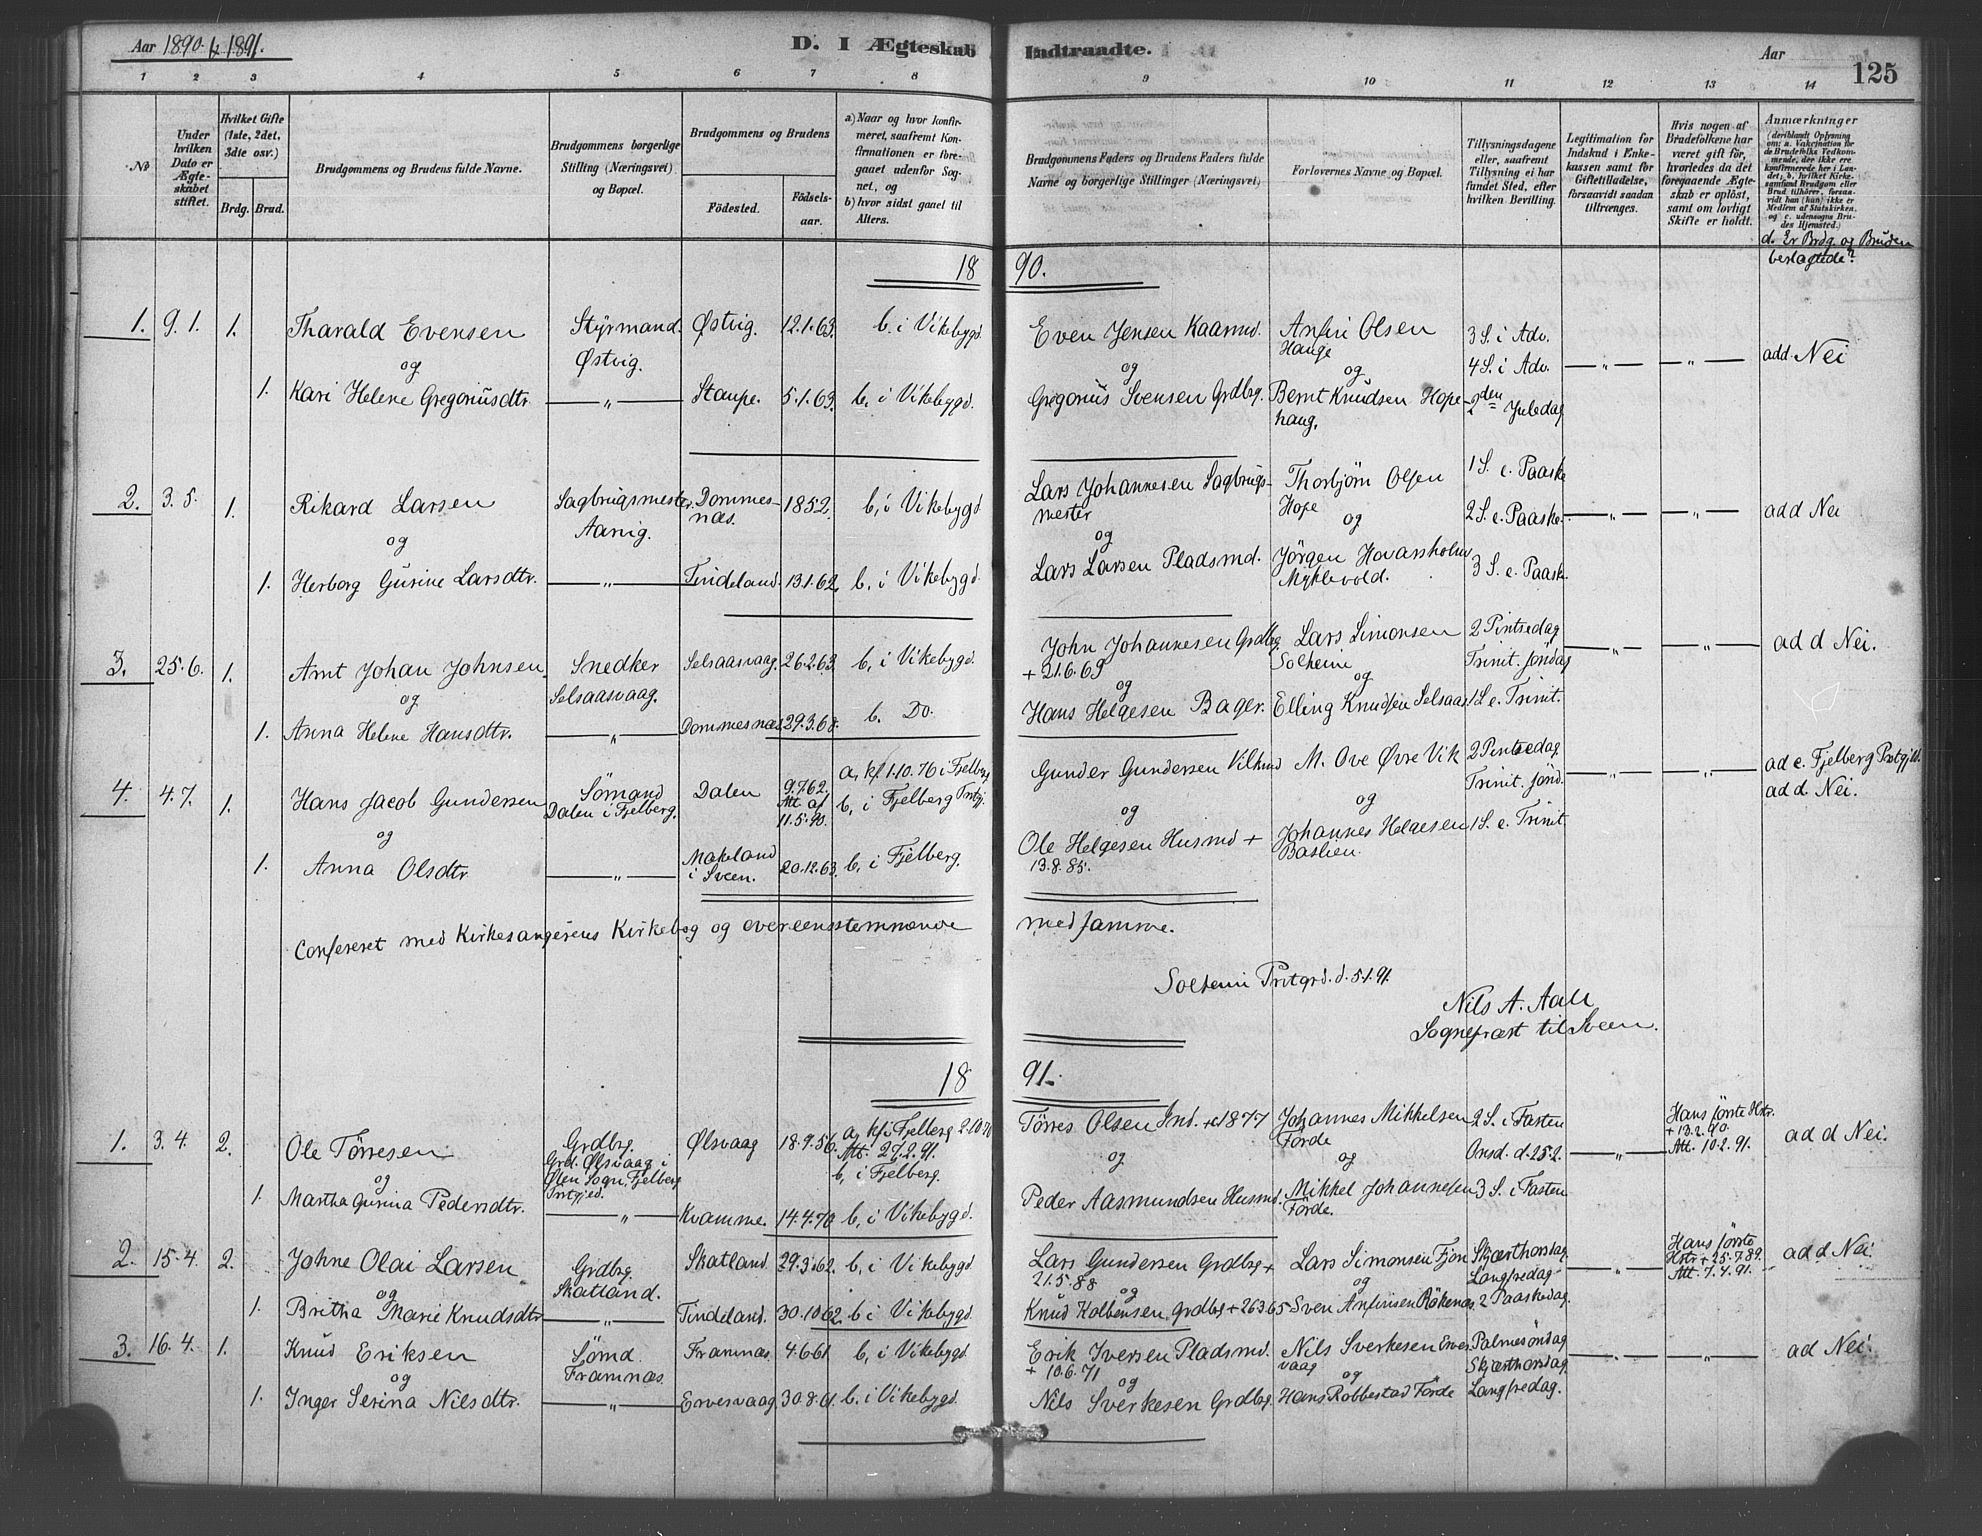 Aar 1890 & 1891.
D. I Ægteskab Indtraadte.
Aar
125
1 2 3 4 5 6 7 8 9 10 11 12 13 14
No
Under hvilken Dato er Ægteskabet stiftet.
Hvilket Gifte (1ste, 2det, 3die osv.)
Brdg. Brud.
Brudgommens og Brudens fulde Navne.
Brudgommens borgerlige Stilling (Næringsvei) og Bopæl.
Brudgommens og Brudens
Fødested.
Fødselsaar.
a) Naar og hvor konfirmeret, saafremt Konfirmationen er foregaaet udenfor Sognet, og
b) hvor sidst gaaet til Alters.
Brudgommens Faders og Brudens Faders fulde Navne og borgerlige Stillinger (Næringsvei)
Forlovernes Navne og Bopæl.
Tillysningsdagene eller, saafremt Tillysning ei har fundet Sted, efter hvilken Bevilling.
Legitimation for Indskud i Enkekassen samt for Giftetilladelse, forsaavidt saadan tiltrænges.
Hvis nogen af Brudefolkene har været gift før, hvorledes da det foregaaende Ægteskab er opløst, samt om lovligt Skifte er holdt.
Anmærkninger
(deriblandt Oplysning om: a. Vakcination for de Brudefolks Vedkommende, der ikke ere konfirmerede her i Landet; b. hvilket Kirkesamfund Brudgom eller Brud tilhører, forsaavidt han (hun) ikke er Medlem af Statskirken, og c. udensogns Brudes Hjemsted.)
d. Er Brdg. og Bruden beslægtede?
1890.
1. 9.1. 1. Tharald Evensen Styrmand. Østvig. Østvig. 12.1.63. b. i Vikebygd Even Jensen Kaarmd. Anfin Olsen Hauge 3 S. i Adv. 4 S. i Adv. — " — — " — add Nei
og og og
1. Kari Helene Gregoriusdtr. — " — Staupe. 5.1.63. b. i Vikebygd. Gregorius Svensen Grdbrg. Bernt Knudsen Hopehaug. 2den Juledag
2. 3.5. 1. Rikard Larsen Sagbrugsmester. Aarvig. Dommesnæs. 1852. b. i Vikebygd Lars Johannesen Sagbrugsmester Thorbjørn Olsen Hope 1 S. e. Paaske 2 S. e. Paaske. — " — — " — add Nei
og og og
1. Herborg Gurine Larsdtr. — " — Tindeland. 13.1.62. b. i Vikebygd Lars Larsen Pladsmd. Jørgen Havarsholm Myklevold. 3 S. e. Paaske.
3. 25.6. 1. Arnt Johan Johnsen Snedker Selsaasvaag. Selsaasvaag. 26.2.63. b. i Vikebygd. John Johannesen Grdbrg + 21.6.69 Lars Simonsen Solheim 2 Pintsedag Trinit. Søndag — " — — " — ad d Nei.
og og og
1. Anna Helene Hansdtr. — " — Dommesnæs 29.3.68. b. Do. Hans Helgesen Bager. Elling Knudsen Selsaas 1 S. e. Trinit.
4. 4.7. 1. Hans Jacob Gundersen Sømand Dalen i Fjelberg. Dalen 9.7.62. Att. af 11.5.90. a, kf. 1.10.76 i Fjelberg b, i Fjelberg Prstgj. Gunder Gundersen M. Ove Øvre Vik 2 Pintsedag Trinit. Sønd. — " — — " — ad c. Fjelberg Prstgjld. ad d Nei.
og og og
1. Anna Olsdtr. — " — Makeland i Sveen. 20.12.63. b, i Fjelberg. Ole Helgesen Husmd + 13.8.85. Johannes Helgesen Baslien. 1 S. e. Trinit.
Confereret med Kirkesangerens Kirkebog og overensstemmende med samme.
Solheim Prstgrd. d. 5.1.91.
Nils A. Aall
Sognepræst til Sveen.
1891.
1. 3.4. 2. Ole Tørresen Grdbrg. Grd. Ølsvaag i Ølen Sogn, Fjelberg Prstgjed. Ølsvaag 18.9.56. a, kf. i Fjelberg Att. 27.2.91. b, i Fjelberg. Tørres Olsen Ind. + 1877 Johannes Mikkelsen Førde 2 S. i Fasten Onsd. d. 25.2. — " — Hans første Hstr. + 13.2.90. Att. 10.2.91. ad d Nei.
og og og
1. Martha Gurina Pedersdtr. — " — Kvamme. 14.4.70 b, i Vikebygd. Peder Aasmundsen Husmd. Mikkel Johannesen Førde. 3 S. i Fasten
2. 15.4. 2. Johne Olai Larsen Grdbrg. Skatland. Skatland. 29.3.62. b, i Vikebygd. Lars Gundersen Grdbrg + 21.5.88 Lars Simonsen Fjon Skjærthorsdag. Langfredag — " — Hans første Hstr + 25.7.89. Att. 7.4.91. ad d Nei.
og og og
1. Britha Marie Knudsdtr — " — Tindeland. 30.10.62. b. i Vikebygd Knud Kolbensen, Grdbrg + 26.3.65 Sven Anfinsen Røkenæs. 2 Paaskedag.
3. 16.4. 1. Knud Eriksen Sømd. Framnæs. Framnæs. 4.6.61 b, i Vikebygd. Erik Iversen Pladsmd. + 10.6.71 Nils Sverkesen Ervesvaag Palmesøndag Skjærthorsdag — " — — " — ad d Nei.
og og og
1. Inger Serina Nilsdtr. — " — Ervesvaag 30.8.61. b. i Vikebygd. Nils Sverkesen Grdbrg. Hans Robbestad Førde Langfredag.